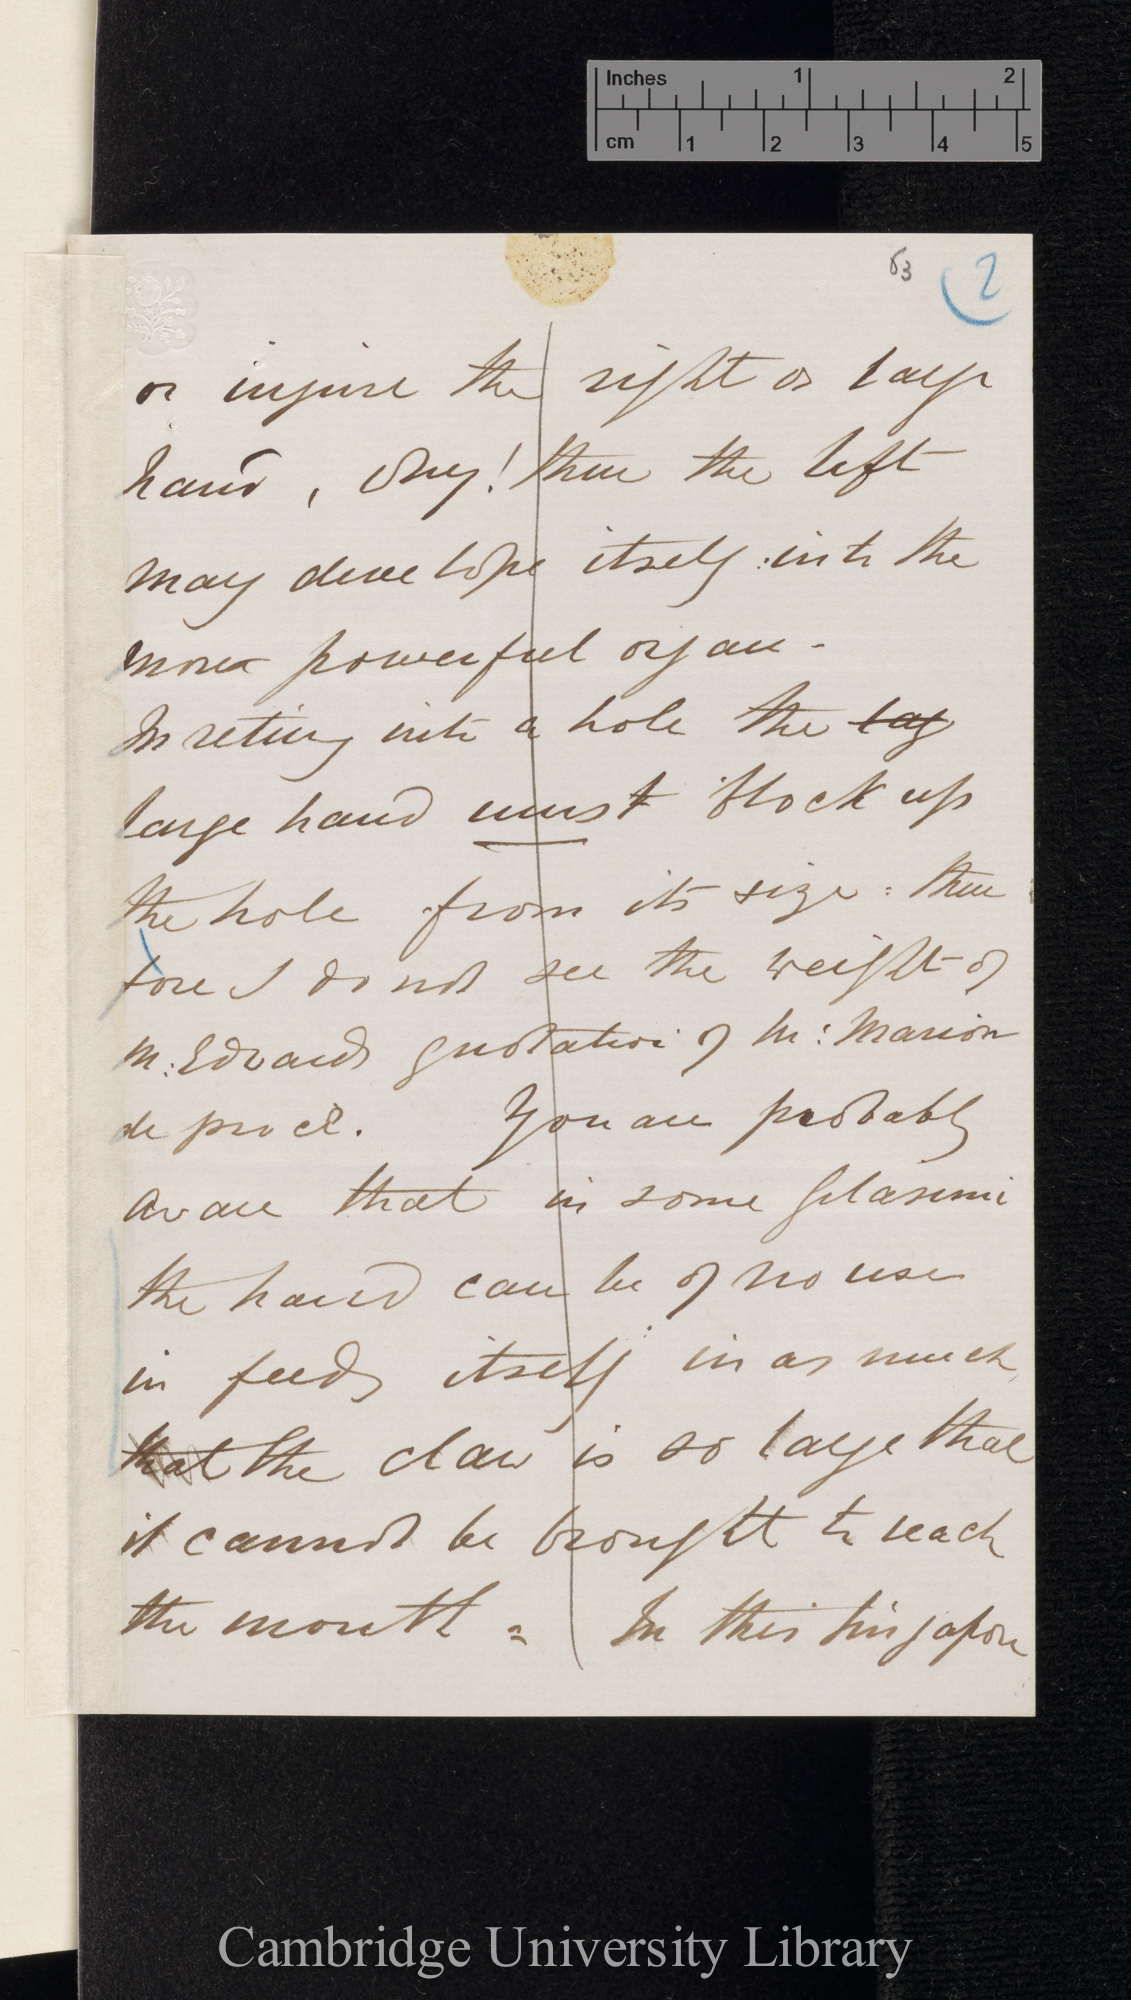 Inches 1 2
cm 1 2 3 4 5
63 2
or injure the right or large
hand, Why! then the left
may develope itself into the
more powerful organ -
In retiring into a hole the lag
large hand must block up
the hole from its size: there
fore I do not see the weight of
M: Edwards quotation of M: Marion
de procé. You are probably
aware that in some Gelasimi
the hand can be of no use
in feeds itself in as much
that the claw is so large that
it cannot be brought to reach
the mouth = In this Singapore
Cambridge University Library